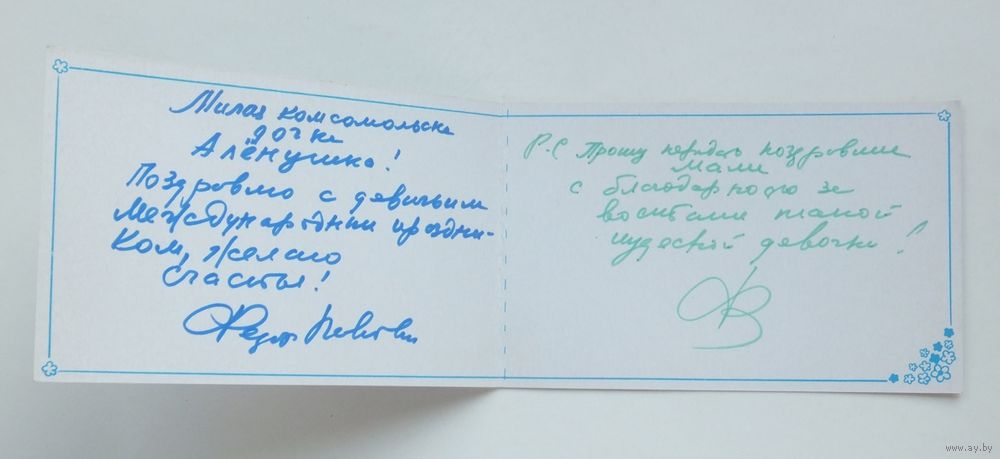 Милая комсомольска
дочка
Алёнушка!
Поздравляю с девичьим
Международным праздни-
ком, желаю
счастья!
Федор
P.S Прошу передать поздравления
Маме
с благодарностью за
воспитание такой
чудесной девочки!
www.ay.by